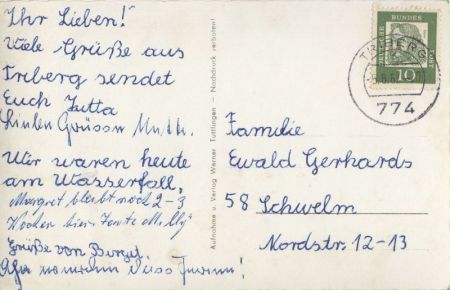 Ihr Lieben!
Viele Grüße aus
Triberg sendet
Euch Jutta
Wir waren heute
am Wasserfall,
Margret bleibt noch 2-3
Wochen hier. Tante Milly
Grüße von
Aufnahme u. Verlag Werner Tuttlingen - Nachdruck verboten!
DEUTSCHE
BUNDESPOST
10
TRIBERG
774
Familie
Ewald Gerhards
58 Schwelm
Nordstr. 12-13